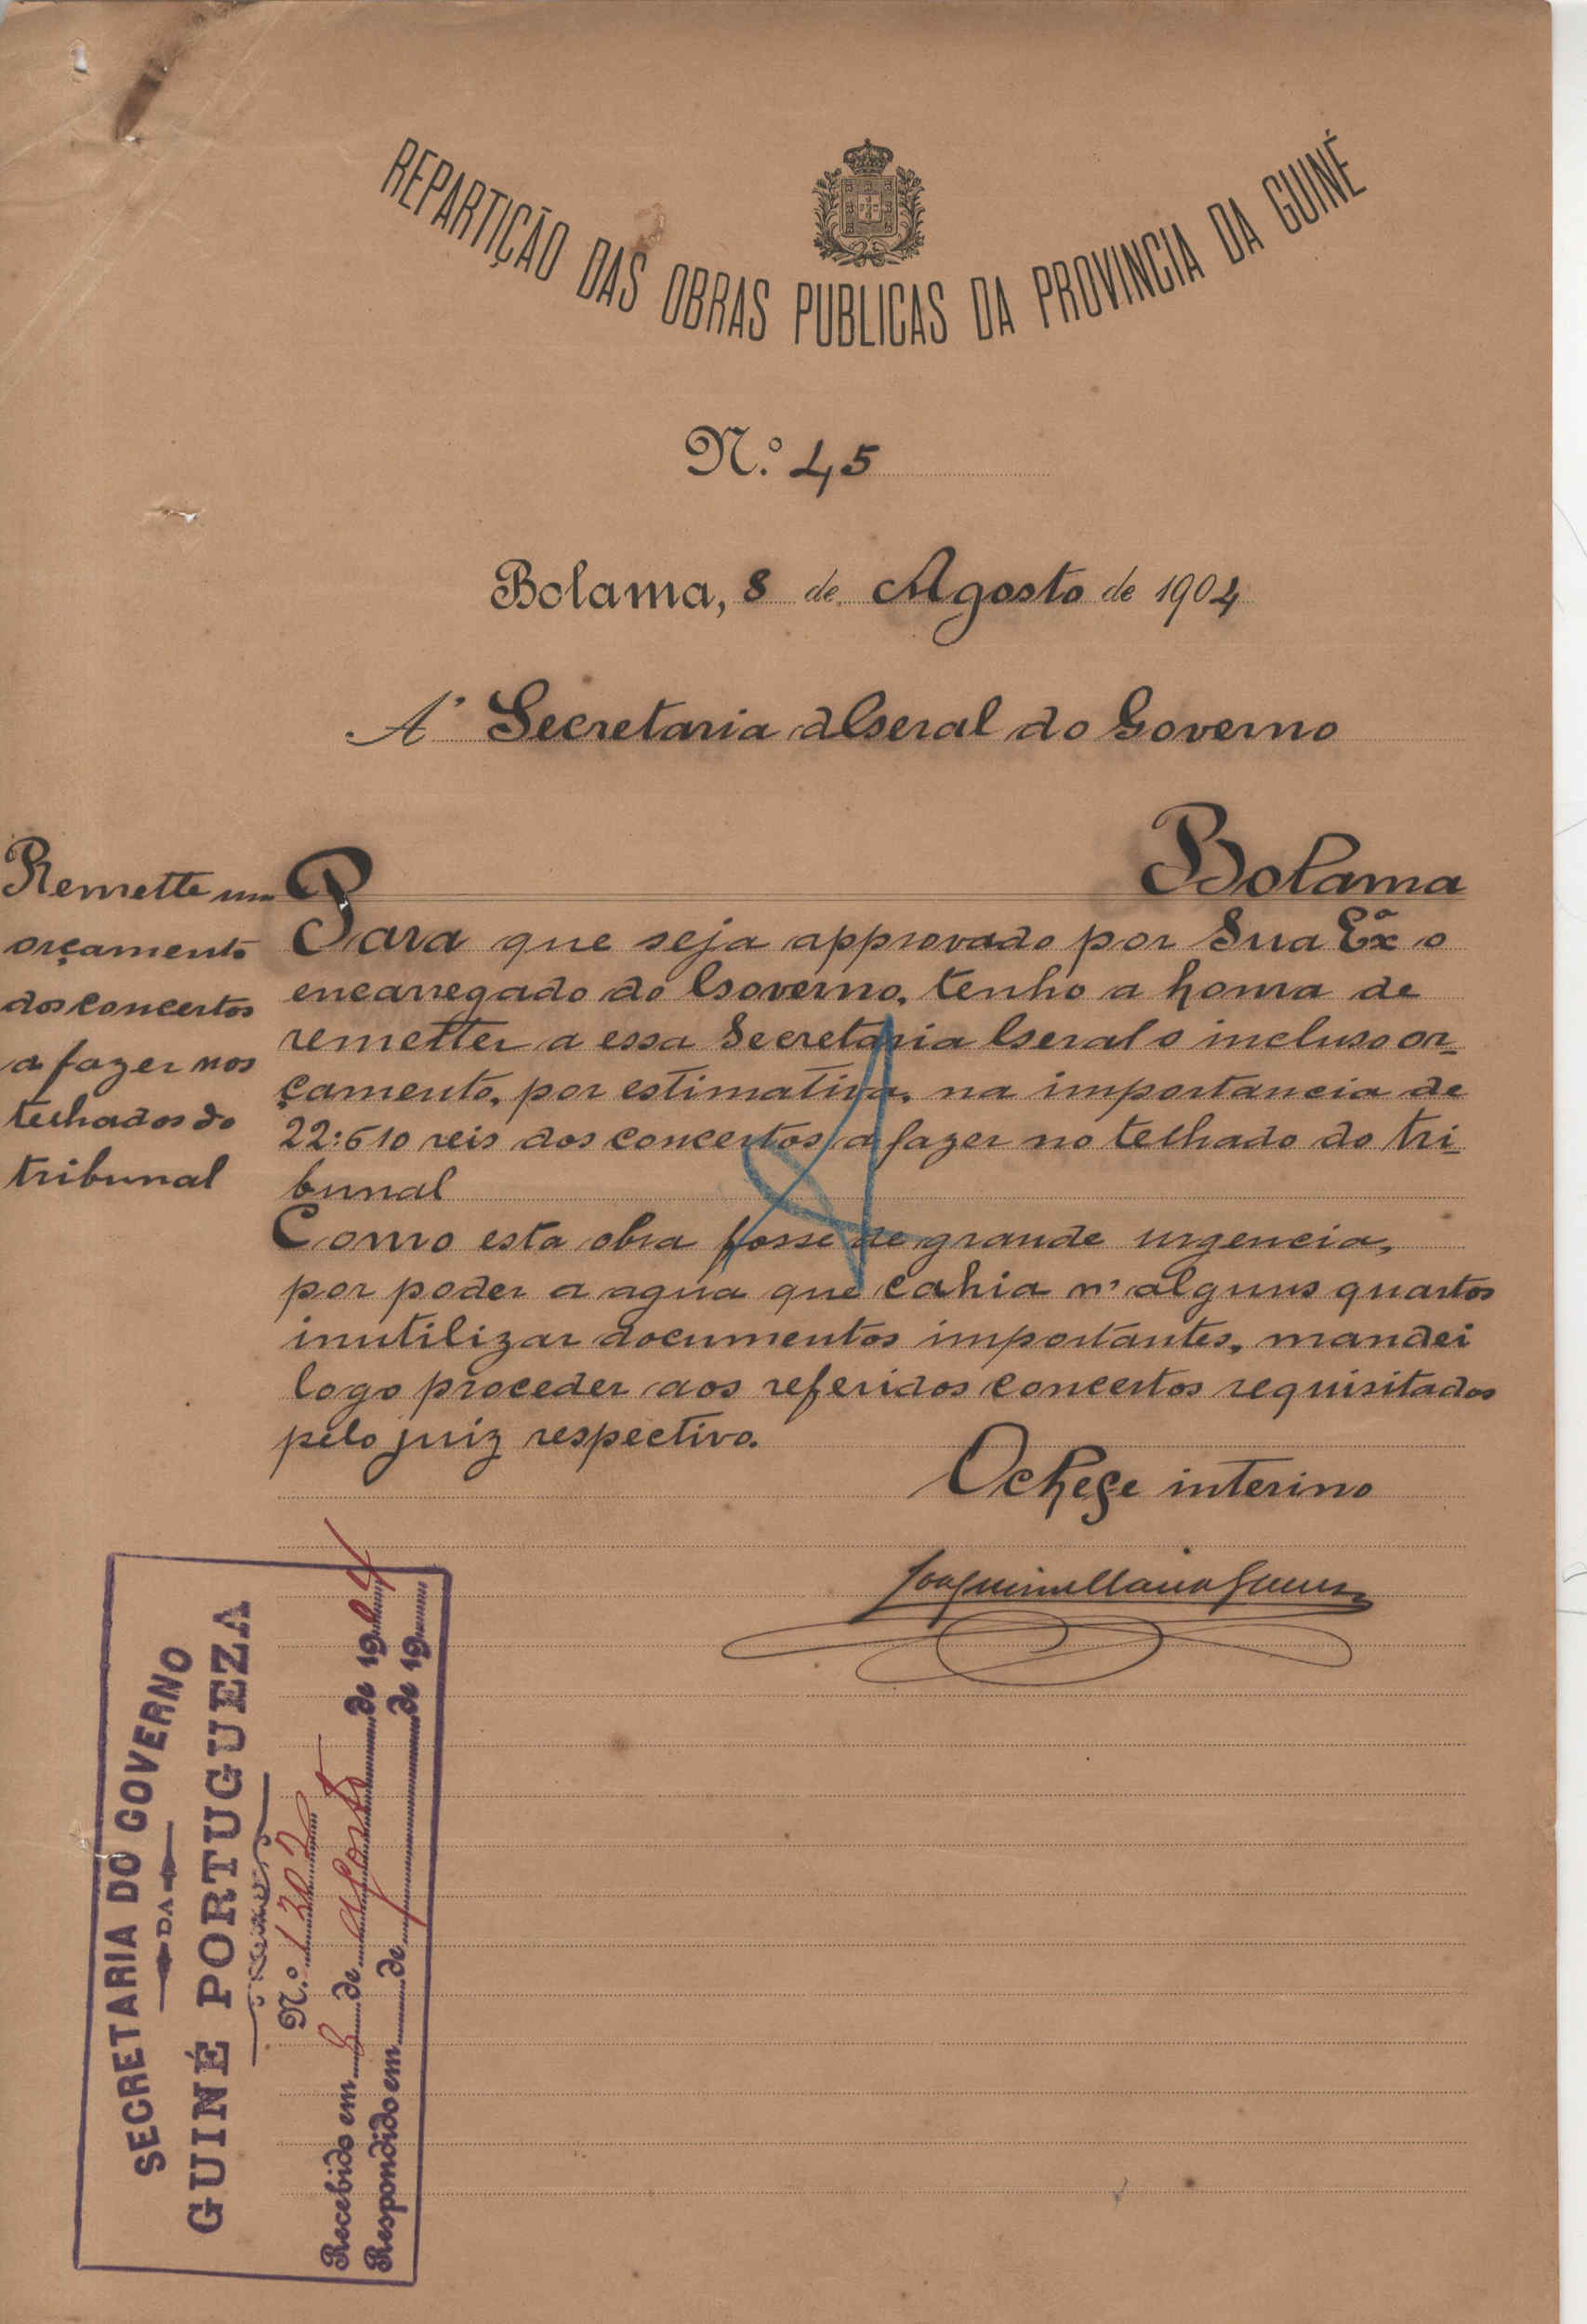 REPARTIÇÃO DAS OBRAS PUBLICAS DA PROVINCIA DA GUINÉ
N.º 45
Bolama, 8 de Agosto de 1904
A' Secretaria Geral do Governo
Bolama
Remette um
orçamento
dos concertos
a fazer nos
telhados do
tribunal
Para que seja approvado por Sua Exª o
encarregado do Governo, tenho a honra de
remetter a essa Secretaria Geral o incluso or-
çamento, por estimativa, na importancia de
22:610 reis dos concertos a fazer no telhado do tri-
bunal
Como esta obra fosse de grande urgencia,
por poder a agua que cahia n'alguns quartos
inutilizar documentos importantes, mandei
logo proceder aos referidos concertos requisitados
pelo juiz respectivo.
O chefe interino
Joaquim Maria
SECRETARIA DO GOVERNO
DA
GUINÉ PORTUGUEZA
N.º 1302
Recebido em 8 de agosto de 1904
Respondido em de de 19